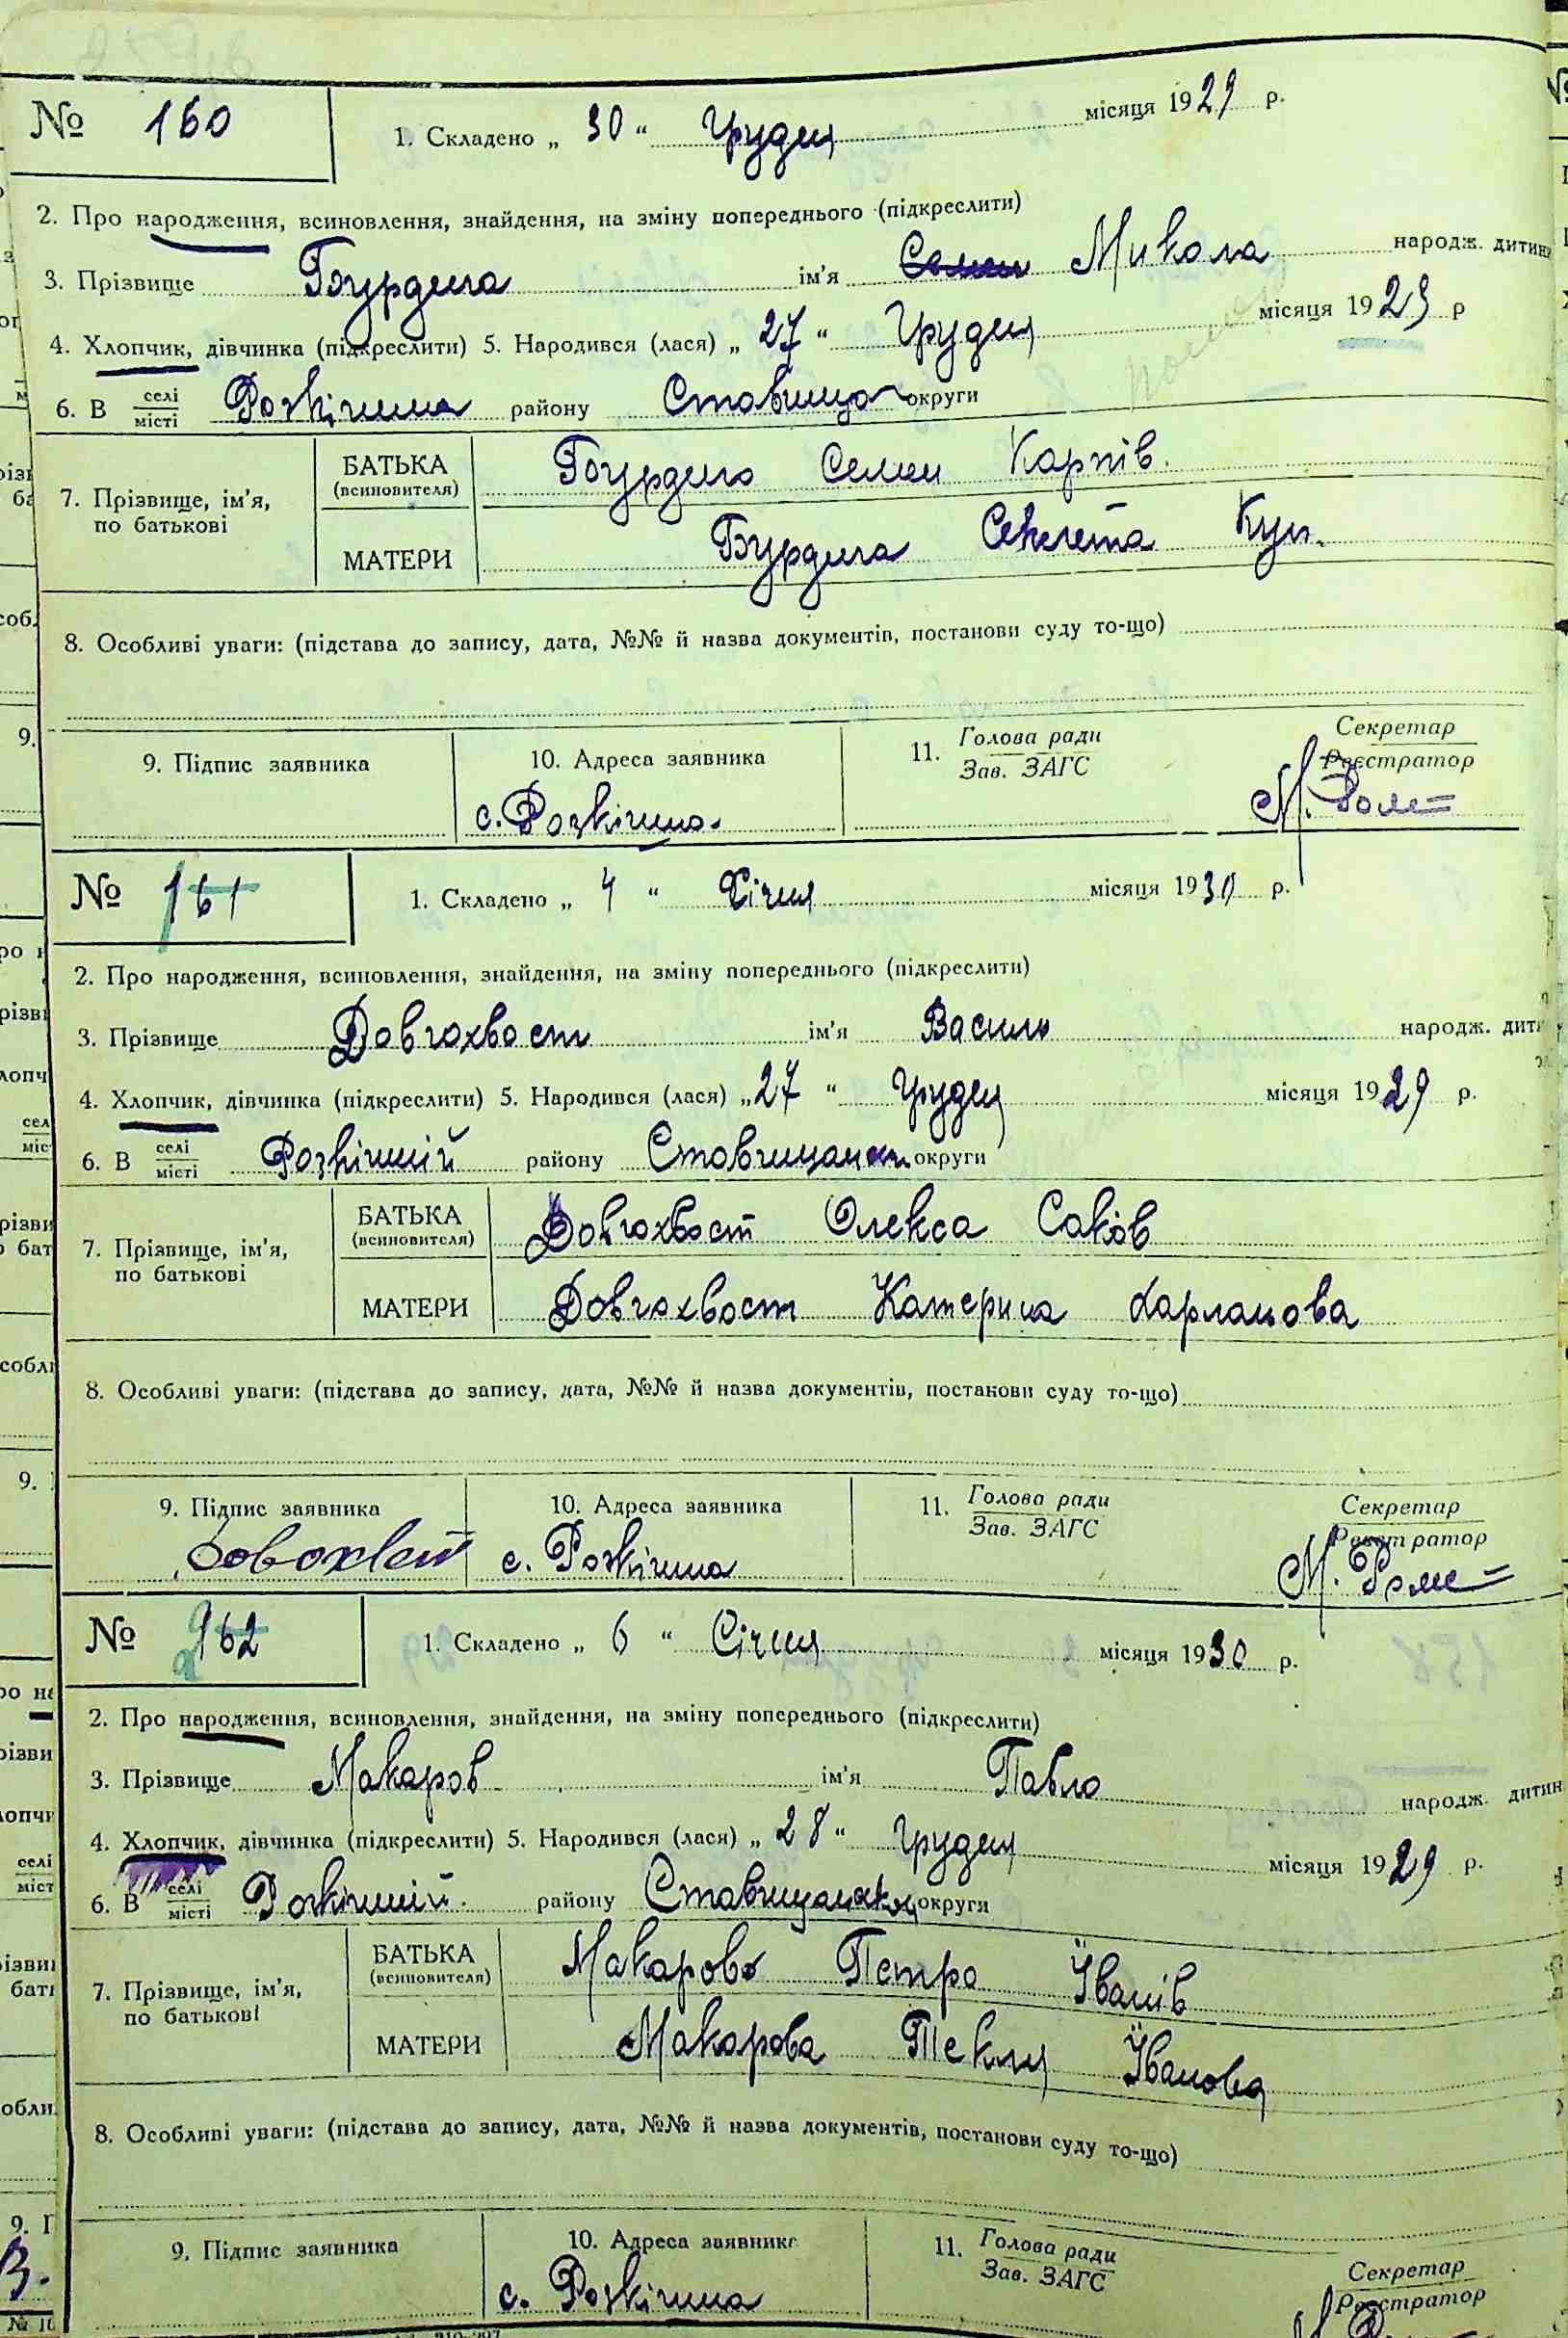 № 160 1. Складено „ 30 “ Грудня місяця 1929 р.
2. Про народження, всиновлення, знайдення, на зміну попереднього (підкреслити)
3. Прізвище Бурдига ім’я Семен Микола народж. дитини
4. Хлопчик, дівчинка (підкреслити) 5. Народився (лася) „ 27 “ Грудня місяця 1929 р
6. В селі/місті Розкішна району Ставище округи
7. Прізвище, ім’я, по батькові
БАТЬКА (всиновителя) Бурдига Семен Карпів.
МАТЕРИ Бурдига Секлета Куп.
8. Особливі уваги: (підстава до запису, дата, №№ й назва документів, постанови суду то-що)
9. Підпис заявника 10. Адреса заявника 11. Голова ради/Зав. ЗАГС Секретар/Реєстратор
с. Розкішна. М.
№ 161 1. Складено „ 4 “ Січня місяця 1930 р.
2. Про народження, всиновлення, знайдення, на зміну попереднього (підкреслити)
3. Прізвище Довгохвост ім’я Василь народж. дит
4. Хлопчик, дівчинка (підкреслити) 5. Народився (лася) „ 27 “ Грудня місяця 1929 р.
6. В селі/місті Розкішній району округи
7. Прізвище, ім’я, по батькові
БАТЬКА (всиновителя) Довгохвост Олекса Саків
МАТЕРИ Довгохвост Катерина Харланова
8. Особливі уваги: (підстава до запису, дата, №№ й назва документів, постанови суду то-що)
9. Підпис заявника 10. Адреса заявника 11. Голова ради/Зав. ЗАГС Секретар/Реєстратор
с. Розкішна М.
№ 162 1. Складено „ 6 “ Січня місяця 1930 р.
2. Про народження, всиновлення, знайдення, на зміну попереднього (підкреслити)
3. Прізвище Макаров ім’я Павло народж. дитин
4. Хлопчик, дівчинка (підкреслити) 5. Народився (лася) „ 28 “ Грудня місяця 1929 р.
6. В селі/місті Розкішній району округи
7. Прізвище, ім’я, по батькові
БАТЬКА (всиновителя) Макаров Петро Іванів
МАТЕРИ Макарова Текля Іванова
8. Особливі уваги: (підстава до запису, дата, №№ й назва документів, постанови суду то-що)
9. Підпис заявника 10. Адреса заявника 11. Голова ради/Зав. ЗАГС Секретар/Реєстратор
с. Розкішна